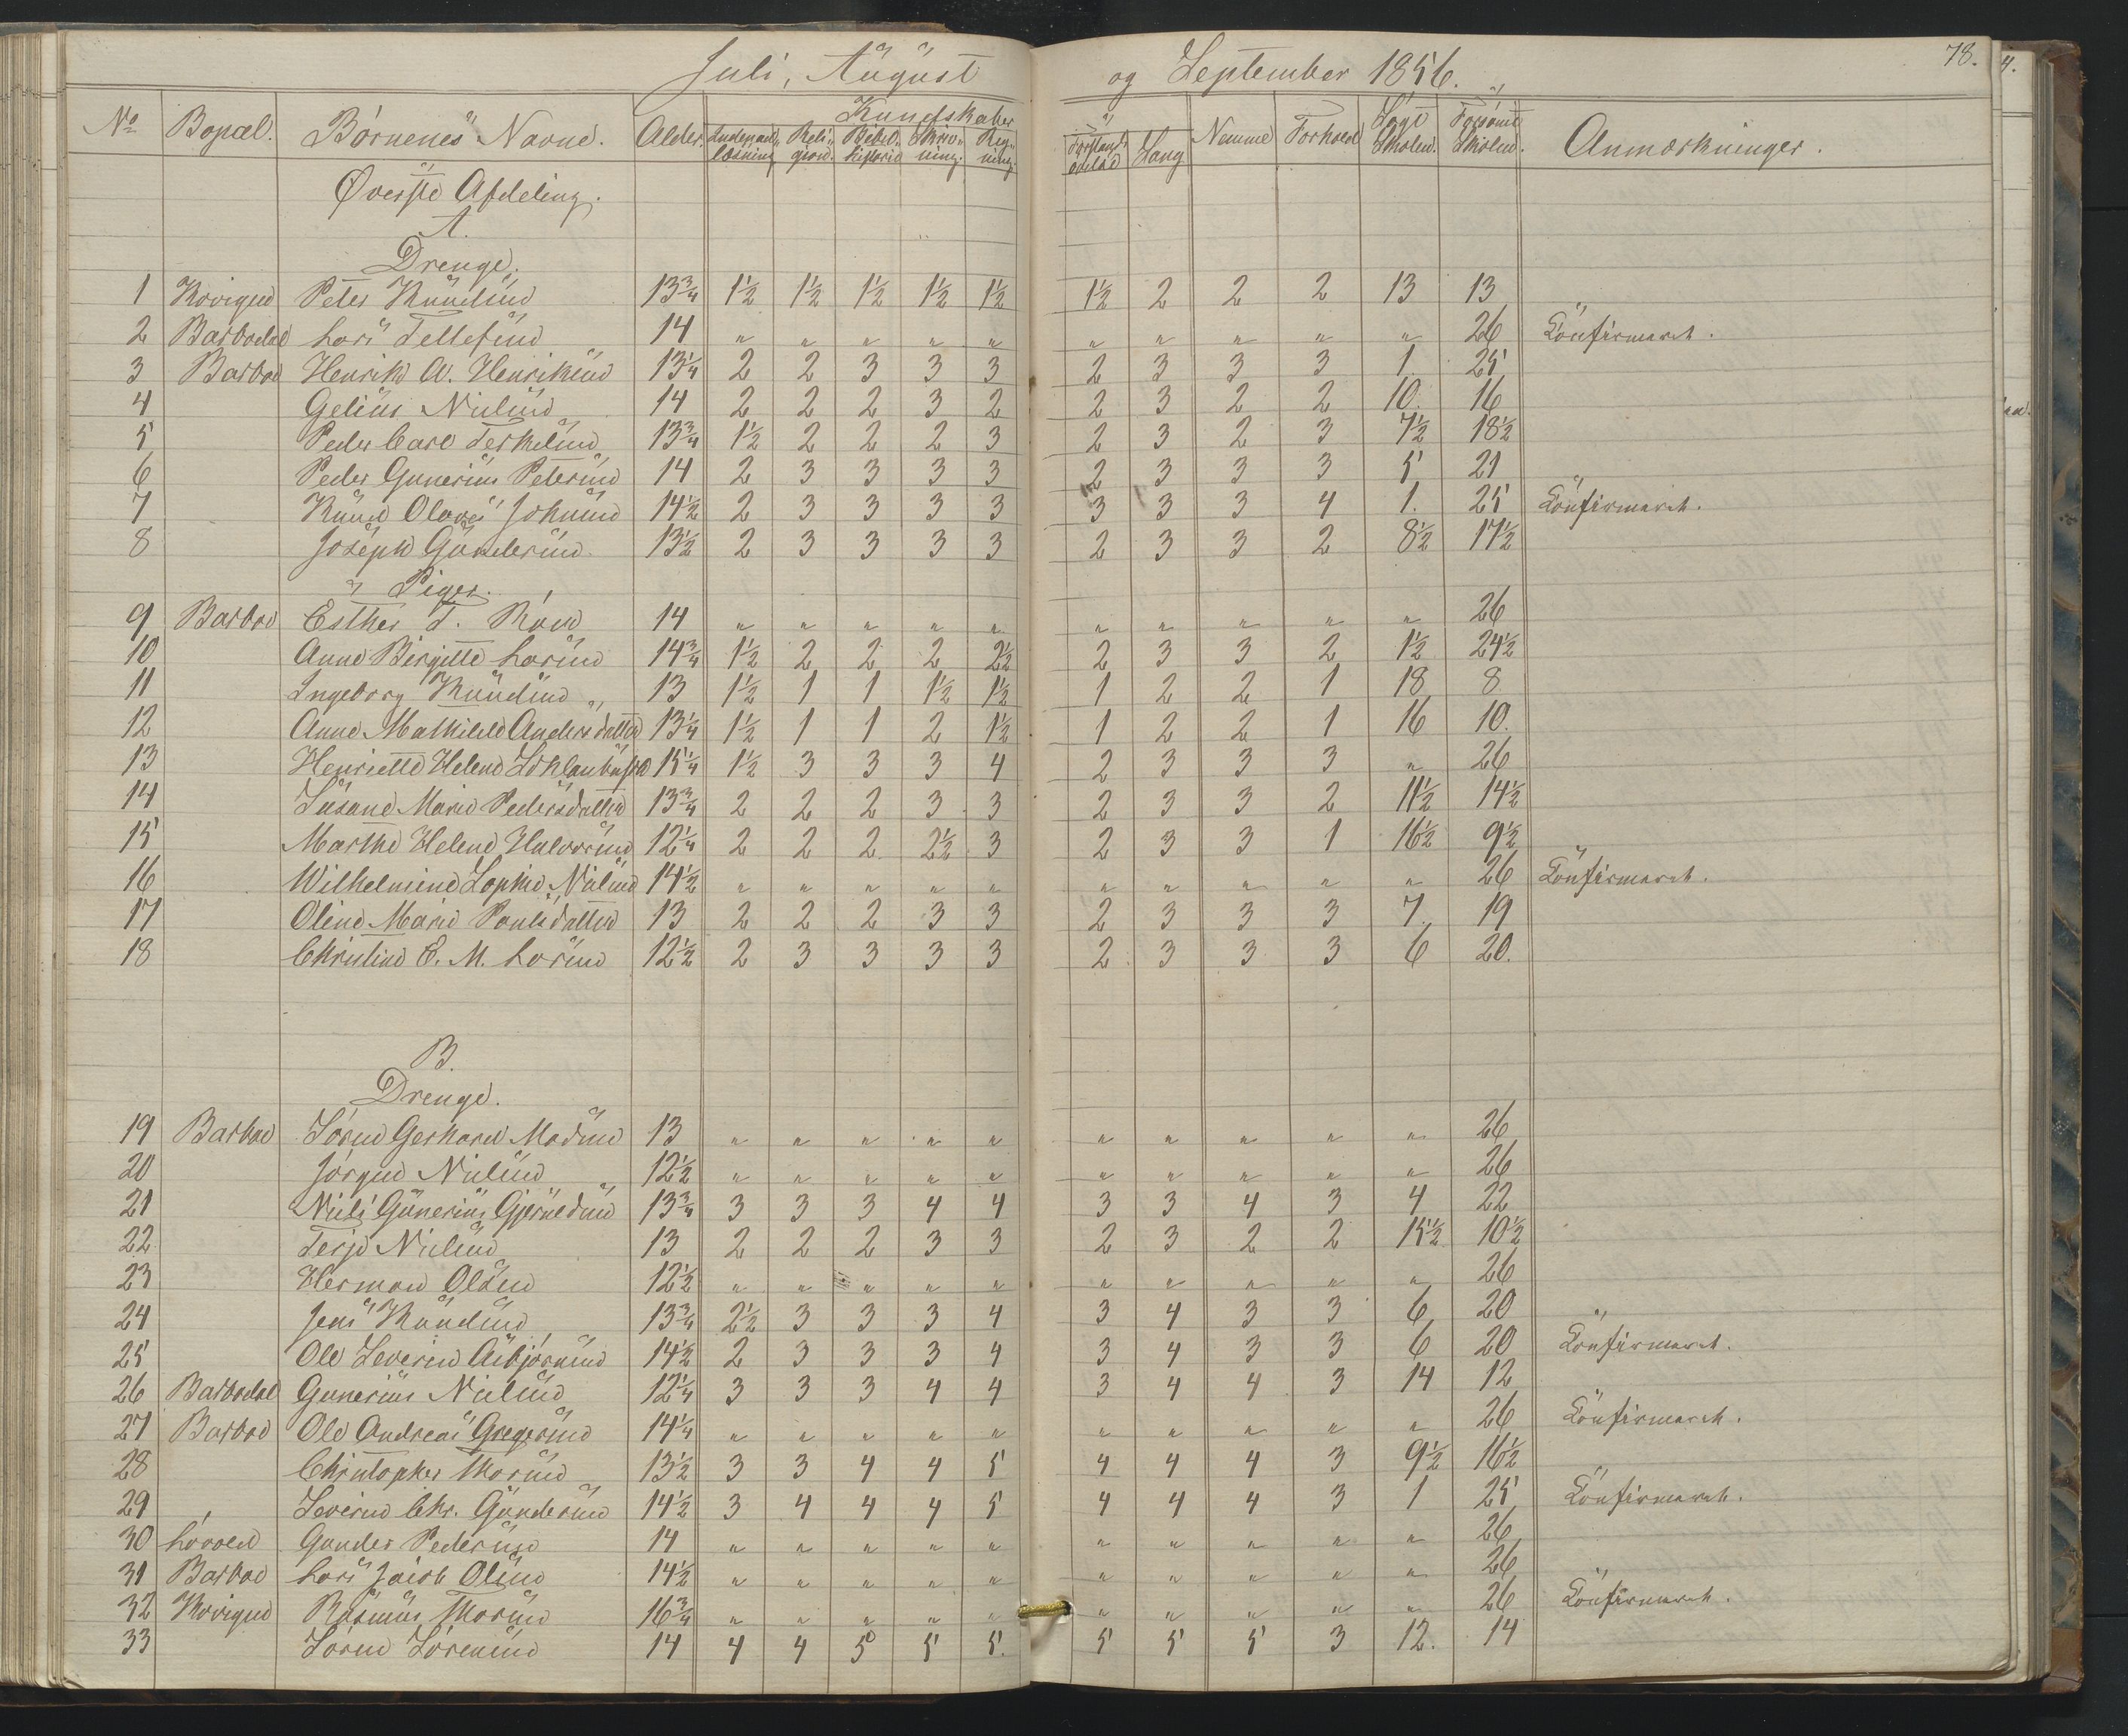 Juli, August og September 1856. 78.
No Bopæl. Børnenes Navne. Alder. Kundskaber Nemme Forhold Søgt Skolen. Forsømt Skolen. Anmærkninger.
Indenad læsning Religion. Bibelhistorie Skrivning. Regning. Forstands øvelse Sang
Øverste Afdeling.
A.
Drenge.
1 Kovigen Peter Knudsen 13 3/4 1 1/2 1 1/2 1 1/2 1 1/2 1 1/2 1 1/2 2 2 2 13 13
2 Barbodal Lars Tellefsen 14 " " " " " " " " " " 26 Confirmeret.
3 Barbod Henrik A. Henriksen 13 1/4 2 2 3 3 3 2 3 3 3 1. 25
4 Gelius Nielsen 14 2 2 2 3 2 2 3 2 2 10. 16
5 Peder Carl Terkelsen 13 3/4 1 1/2 2 2 2 3 2 3 2 3 7 1/2 18 1/2
6 Peder Gunerius Petersen 14 2 3 3 3 3 2 3 3 3 5 21
7 Knud Olaves Johnsen 14 1/2 2 3 3 3 3 3 3 3 4 1. 25 Confirmeret.
8 Joseph Gundersen 13 1/2 2 3 3 3 3 2 3 3 2 8 1/2 17 1/2
Piger.
9 Barbod Esther T. 14 " " " " " " " " " " 26
10 Anne Birgitte Larsen 14 3/4 1 1/2 2 2 2 2 1/2 2 3 3 2 1 1/2 24 1/2
11 Ingeborg Knudsen 13 1 1/2 1 1 1 1/2 1 1/2 1 2 2 1 18 8
12 Anne Mathilde Andersdatter 13 1/4 1 1/2 1 1 2 1 1/2 1 2 2 1 16 10.
13 Henriette Helene 15 1/4 1 1/2 3 3 3 4 2 3 3 3 " 26
14 Susane Marie Pedersdatter 13 3/4 2 2 2 3 3 2 3 3 2 11 1/2 14 1/2
15 Marthe Helene Halvorsen 12 1/4 2 2 2 2 1/2 3 2 3 3 1 16 1/2 9 1/2
16 Wilhelmine Sophie Nielsen 14 1/2 " " " " " " " " " " 26 Confirmeret.
17 Oline Marie Poulsdatter 13 2 2 2 3 3 2 3 3 3 7. 19
18 Christine E. M. Larsen 12 1/2 2 3 3 3 3 2 3 3 3 6 20.
B.
Drenge.
19 Barbod Søren Gerhard Madsen 13 " " " " " " " " " " 26
20 Jørgen Nielsen 12 1/2 " " " " " " " " " " 26
21 Niels Gunerius Gjeruldsen 13 3/4 3 3 3 4 4 3 3 4 3 4 22
22 Terje Nielsen 13 2 2 2 3 3 2 3 2 2 15 1/2 10 1/2
23 Herman Olsen 12 1/2 " " " " " " " " " " 26
24 Jens Knudsen 13 3/4 2 1/2 3 3 3 4 3 4 3 3 6 20
25 Ole Severin Asbjørnsen 14 1/2 2 3 3 3 4 3 4 3 3 6 20 Confirmeret.
26 Barbodal Gunerius Nielsen 12 1/4 3 3 3 4 4 3 4 4 3 14 12
27 Barbod Ole Andreas Gregersen 14 1/4 " " " " " " " " " " 26 Confirmeret.
28 Christopher Thorsen 13 1/2 3 3 4 4 5 4 4 4 3 9 1/2 16 1/2
29 Severin Chr. Gundersen 14 1/2 3 4 4 4 5 4 4 4 3 1 25 Confirmeret.
30 Gunder Pedersen 14 " " " " " " " " " " 26
31 Barbod Lars Jacob Olsen 14 1/2 " " " " " " " " " " 26
32 Kovigen Rasmus Thorsen 16 3/4 " " " " " " " " " " 26 Confirmeret.
33 Søren Sørensen 14 4 4 5 5 5. 5 5 5 3 12. 14